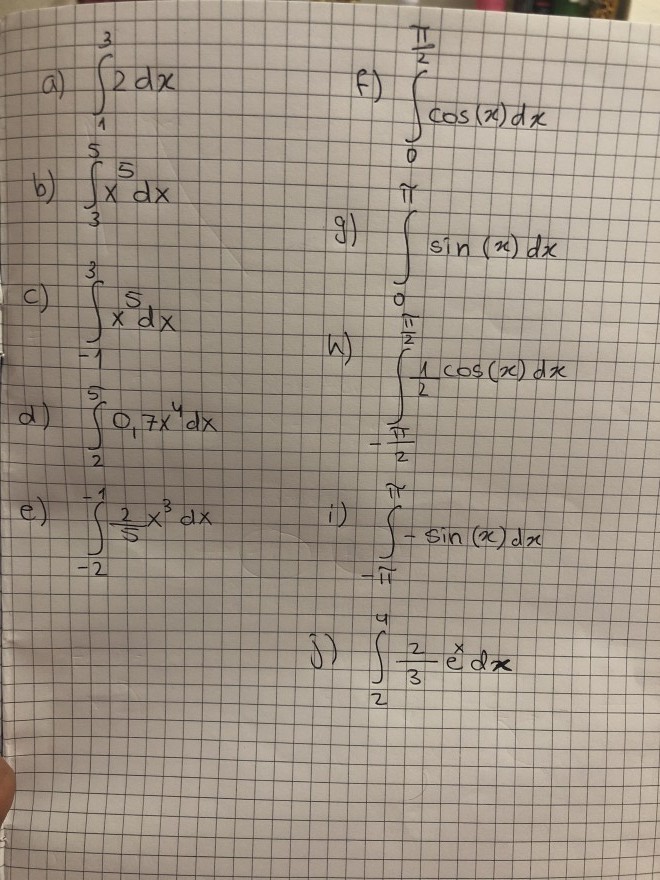 a) ∫₁³ 2 dx
b) ∫₃⁵ x⁵ dx
c) ∫₋₁³ x⁵ dx
d) ∫₂⁵ 0,7x⁴ dx
e) ∫₋₂⁻¹ 2/5 x³ dx
f) ∫₀^(π/2) cos(x) dx
g) ∫₀^π sin (x) dx
h) ∫_(-π/2)^(π/2) 1/2 cos(x) dx
i) ∫_(-π)^π - sin (x) dx
j) ∫₂⁴ 2/3 eˣ dx